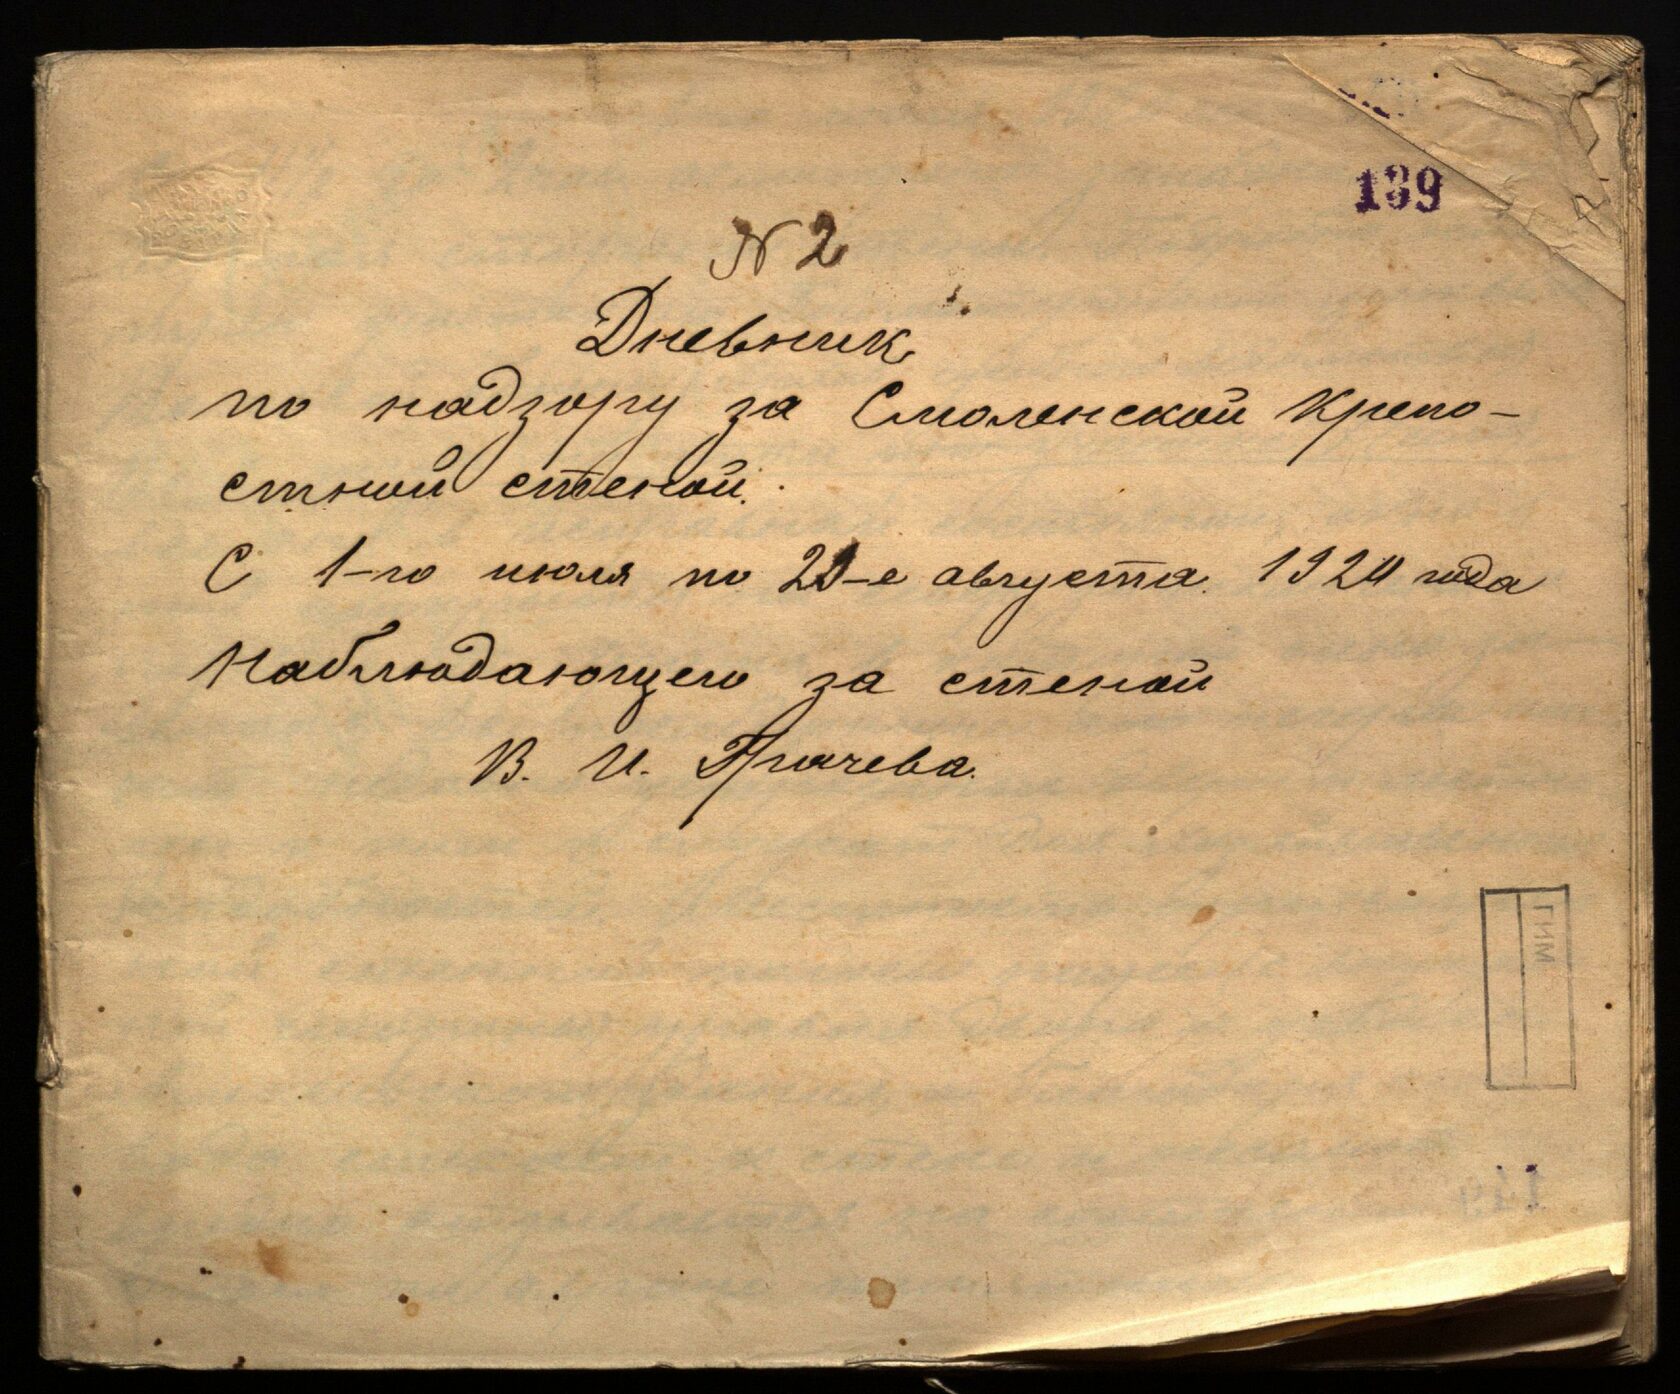 139
N 2
Дневник
по надзору за Смоленской Крепо-
стной стеной.
С 1-го июля по 21-е августа 1924 года
Наблюдающего за стеной
В. И. Грачева.
ГИМ
149